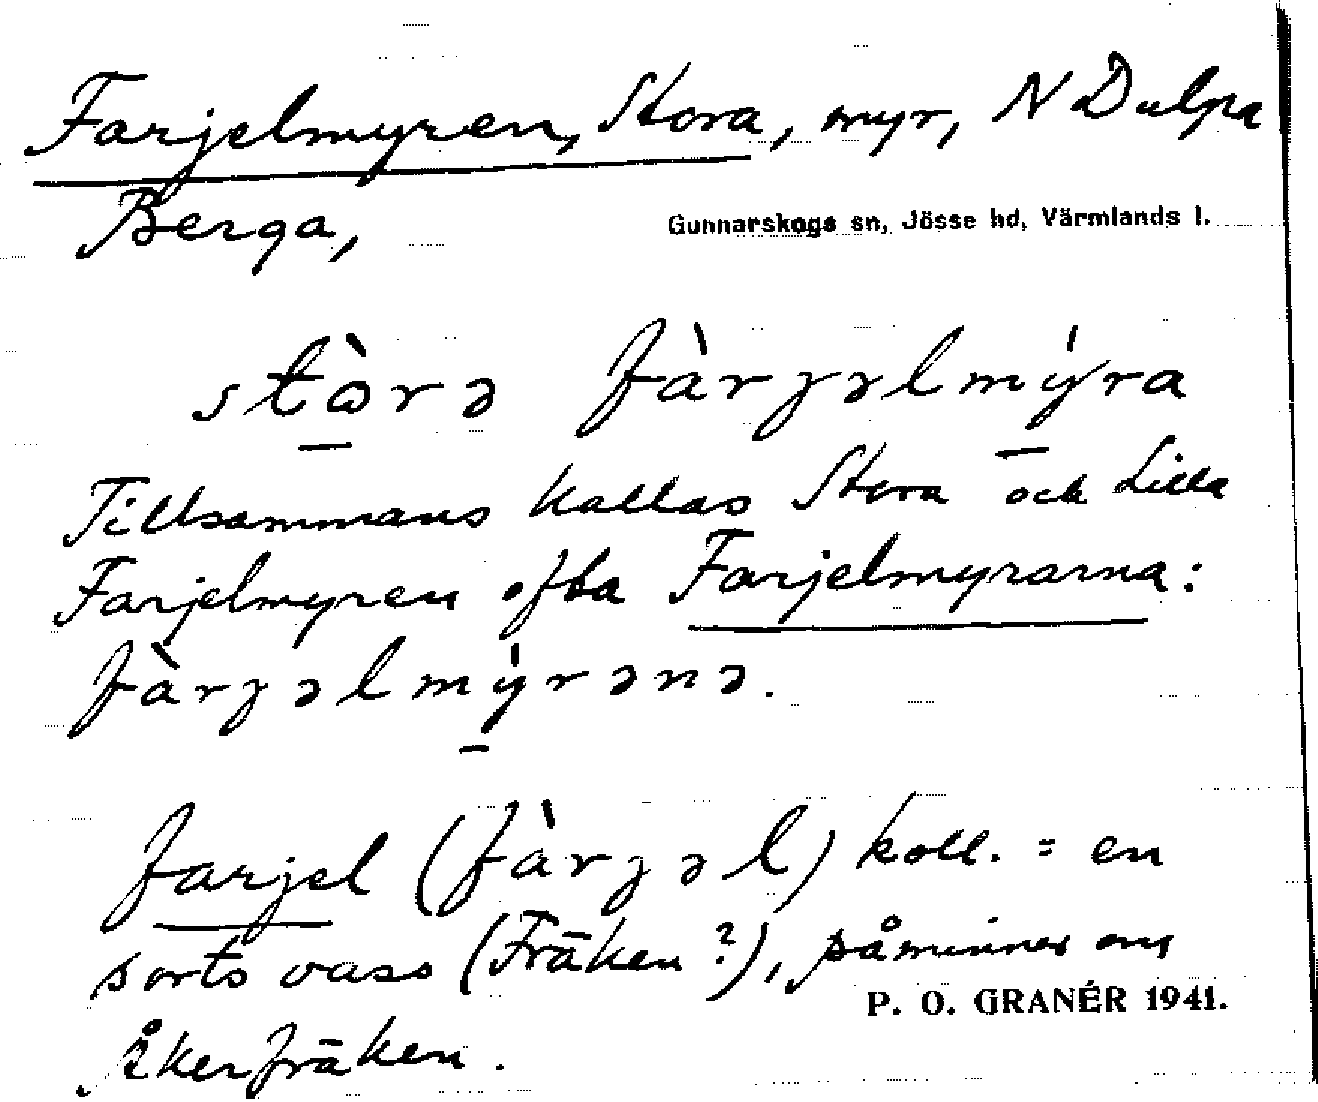 Farjelmyren, Stora, myr, N Dulpa
Berga,
Gunnarskogs sn, Jösse hd, Värmlands l.
stɷ̀rə fàrjəlmýra
Tillsammans kallas Stora och Lilla
Farjelmyren ofta Farjelmyrarna:
fàrjəlmýrənə.
farjel (fàrjəl) koll. = en
sorts vass (Fräken?), påminner om
P. O. GRANÉR 1941.
Åkerfräken.